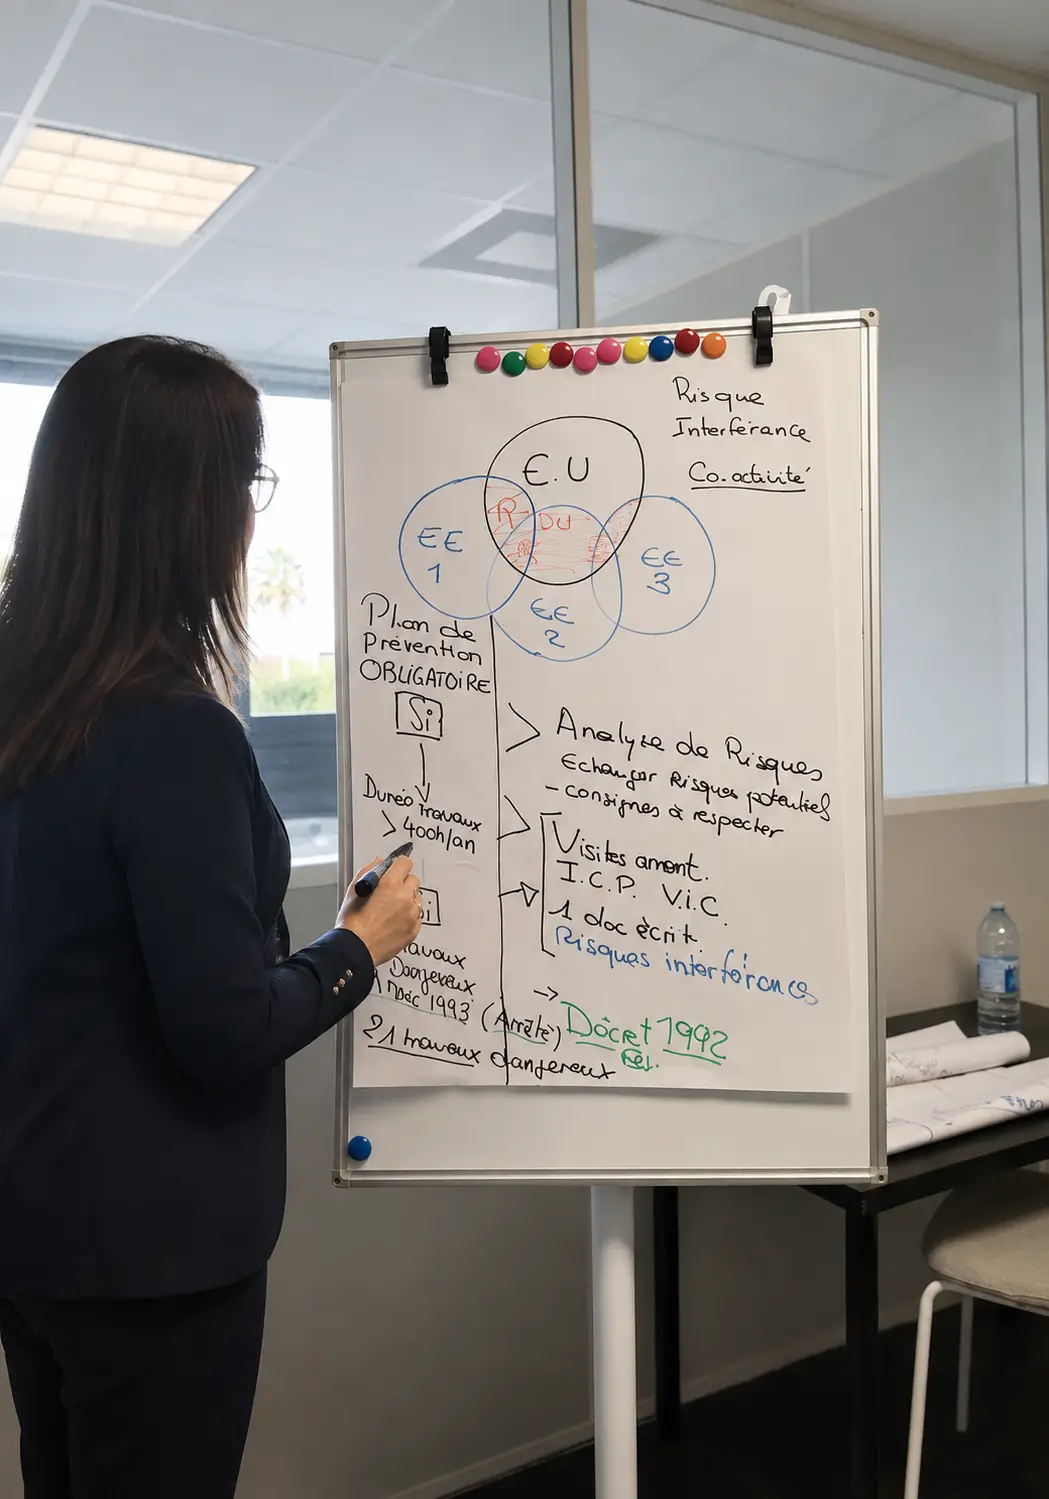 Risque
Interférance
Co.activité
E.U
R
DU
EE
1
EE
2
EE
3
Plan de
Prévention
OBLIGATOIRE
Si
Durée travaux
> 400h/an
Si
Travaux
Dangereux
1993 (Arrêté)
21 travaux dangereux
> Analyse de Risques
Echanger Risques potentiels
- consignes à respecter
> Visites amont.
I.C.P. V.I.C.
1 doc écrit.
Risques interférences
→ Décret 1992